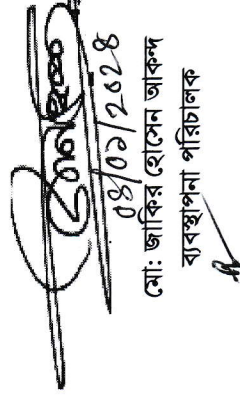 ০৪/০১/২০২৪
মো: জাকির হোসেন আকন্দ
ব্যবস্থাপনা পরিচালক